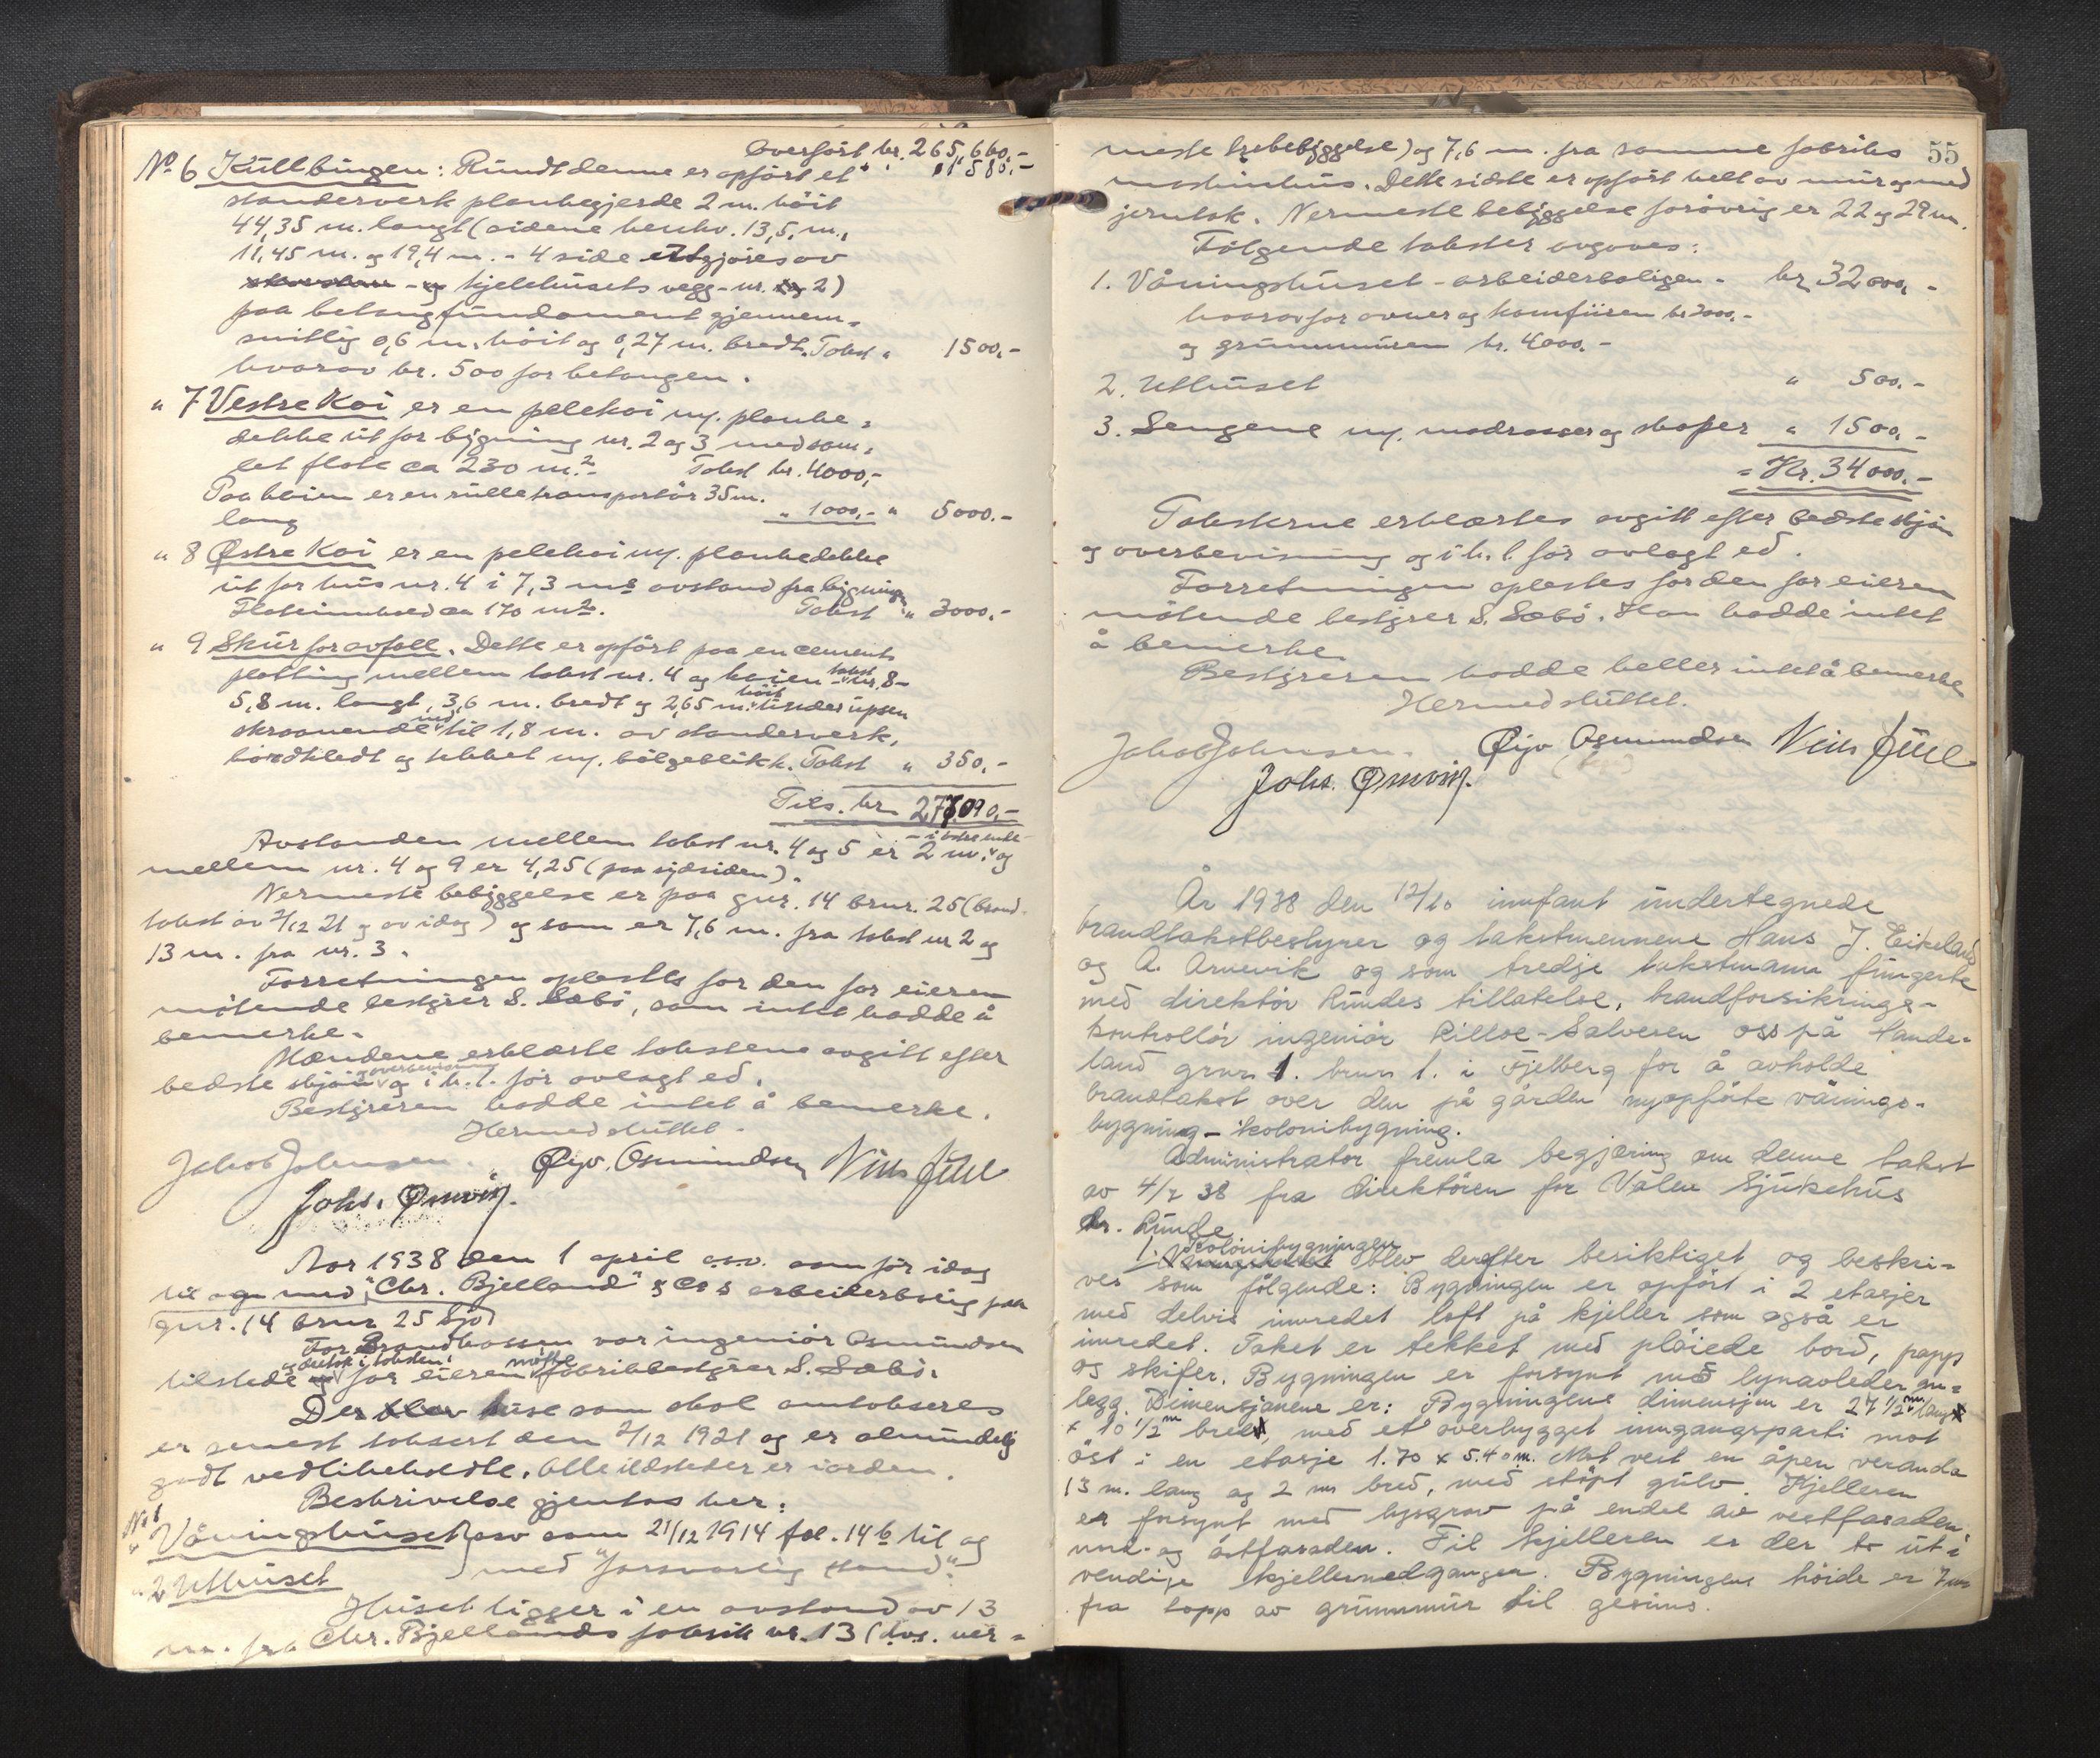 Overført kr. 265,660.-
" 1580.-
No 6 Kullbingen: Rundt denne er opført et
standerverk plankegjerde 2 m. høit
44,35 m. langt (sidene henhv. 13,5, m.,
11,45 m. og 19,4 m. - 4 side utgjøres av
kjelehusets vegg - nr. 2)
paa betongfundament gjennem-
snittlig 0,6 m. høit og 0,27 m. bredt. Takst " 1500.-
hvorav kr. 500 for betongen.
" 7 Vestre Kai er en pelekai m. planke-
dekke ut for bygning nr. 2 og 3 med sam-
let flate ca 230 m.2- Takst kr. 4000,-
Paa kaien er en rulletransportør 35 m.
lang " 1000.- " 5000.-
" 8 Østre Kai er en pelekai m. plankedekke
ut for hus nr. 4 i 7,3 ms avstand fra bygningen
Flateinnhold ca 170 m2. Takst " 3000.-
" 9 Skur for avfall. Dette er opført paa en cements
platting mellem takst nr. 4 og kaien - takst nr. 8 -
5,8 m. langt, 3,6 m. bredt og 2,65 m. høit under upsen
skraanende ned til 1,8 m. av standerverk,
bordkledt og tekket m. bølgeblikk. Takst " 350.-
Tils. kr 277.090.-
Avstanden mellem takst nr. 4 og 5 er 2 m. - i østre ende - og
mellem nr. 4 og 9 er 4,25 (paa sydsiden).
Nermeste bebyggelse er paa gnr. 14 brnr. 25 (brand-
takst av 2/12 21 og av idag) og som er 7,6 m. fra takst nr 2 og
13 m. fra nr. 3.
Forretningen oplestes for den for eieren
møtende bestyrer S. Sæbø, som intet hadde å
bemerke.
Mændene erklærte takstene avgitt efter
bedste skjøn og overbevisning og i h. t. før avlagt ed.
Bestyreren hadde intet å bemerke.
Hermed sluttet.
Jakob Johnsen. Øyv. Osmundsen Nils Juul
Johs. Ømvig.
Aar 1938 den 1 april o.s.v. som før idag
til og med "Chr. Bjelland" & Co s arbeiderbolig paa
gnr. 14 brnr 25 Sjo
For Brandkassen var ingeniør Osmundsen
tilstede og deltok i taksten, for eieren møtte fabrikkbestyrer S. Sæbø.
De huse som skal omtakseres
er senest taksert den 2/12 1921 og er almindelig
godt vedlikeholdte. Alle ildsteder er i orden.
Beskrivelse gjentas her:
No 1
" Våningshuset osv som 21/12 1914 fol. 14b til og
" 2 Uthuset med "forsvarlig stand".
Huset ligger i en avstand av 13
m. fra Chr. Bjellands fabrik nr. 13 (dvs. ner-
55
meste trebebyggelse) og 7,6 m. fra samme fabriks
maskinhus. Dette sidste er opført helt av mur og med
jerntak. Nermeste bebyggelse forøvrig er 22 og 29 m.
Følgende takster avgaves:
1. Våningshuset - arbeiderboligen - kr 32000,-
hvorav for ovner og komfüiren kr 2000.-
og grunnmuren kr. 4000.-
2. Uthuset " 500.-
3. Sengene m. madrasser og skaper " 1500.-
= Kr. 34000.-
Taksterne erklærtes avgitt efter bedste skjøn
og overbevisning og i h. t. før avlagt ed.
Forretningen oplestes for den for eieren
møtende bestyrer S. Sæbø. Han hadde intet
å bemerke
Bestyreren hadde heller intet å bemerke
Hermed sluttet.
Jakob Johnsen. Øyv Osmundsen Nils Juul
Johs. Ømvig.
År 1938 den 12/10 innfant undertegnede
brandtakstbestyrer og takstmennene Hans J. Eikeland
og A. Arnevik og som tredje takstmann fungerte
med direktør Rundes tillatelse, brandforsikrings-
kontrollør ingeniør Rilloe-Salvesen oss på Hande-
land grnr 1. brnr 1. i Fjelberg for å avholde
brandtakst over den på gården nyopførte vånings-
bygning - kolonibygning.
Administrator fremla begjæring om denne takst
av 4/7 38 fra direktøren for Valen Sjukehus
dr. Runde
1. Kolonibygningen blev derefter besiktiget og beskri-
ves som følgende: Bygningen er opført i 2 etasjer
med delvis innredet loft på kjeller som også er
innredet. Taket er tekket med pløiede bord, papp
og skifer. Bygningen er forsynt med lynavleder an-
legg. Dimensjonene er: Bygningens dimensjon er 27 1/2 m lang
x 10 1/2 m bred, med et overbygget inngangsparti mot
øst i en etasje 1.70 x 5.40 m. Mot vest en åpen veranda
13 m. lang og 2 m bred, med støpt gulv. Kjelleren
er forsynt med lysgrav på endel av vestfasaden,
nord- og østfasaden. Til kjelleren er der to ut-
vendige kjellernedganger. Bygningens høide er 7 m
fra topp av grunnmur til gesims.